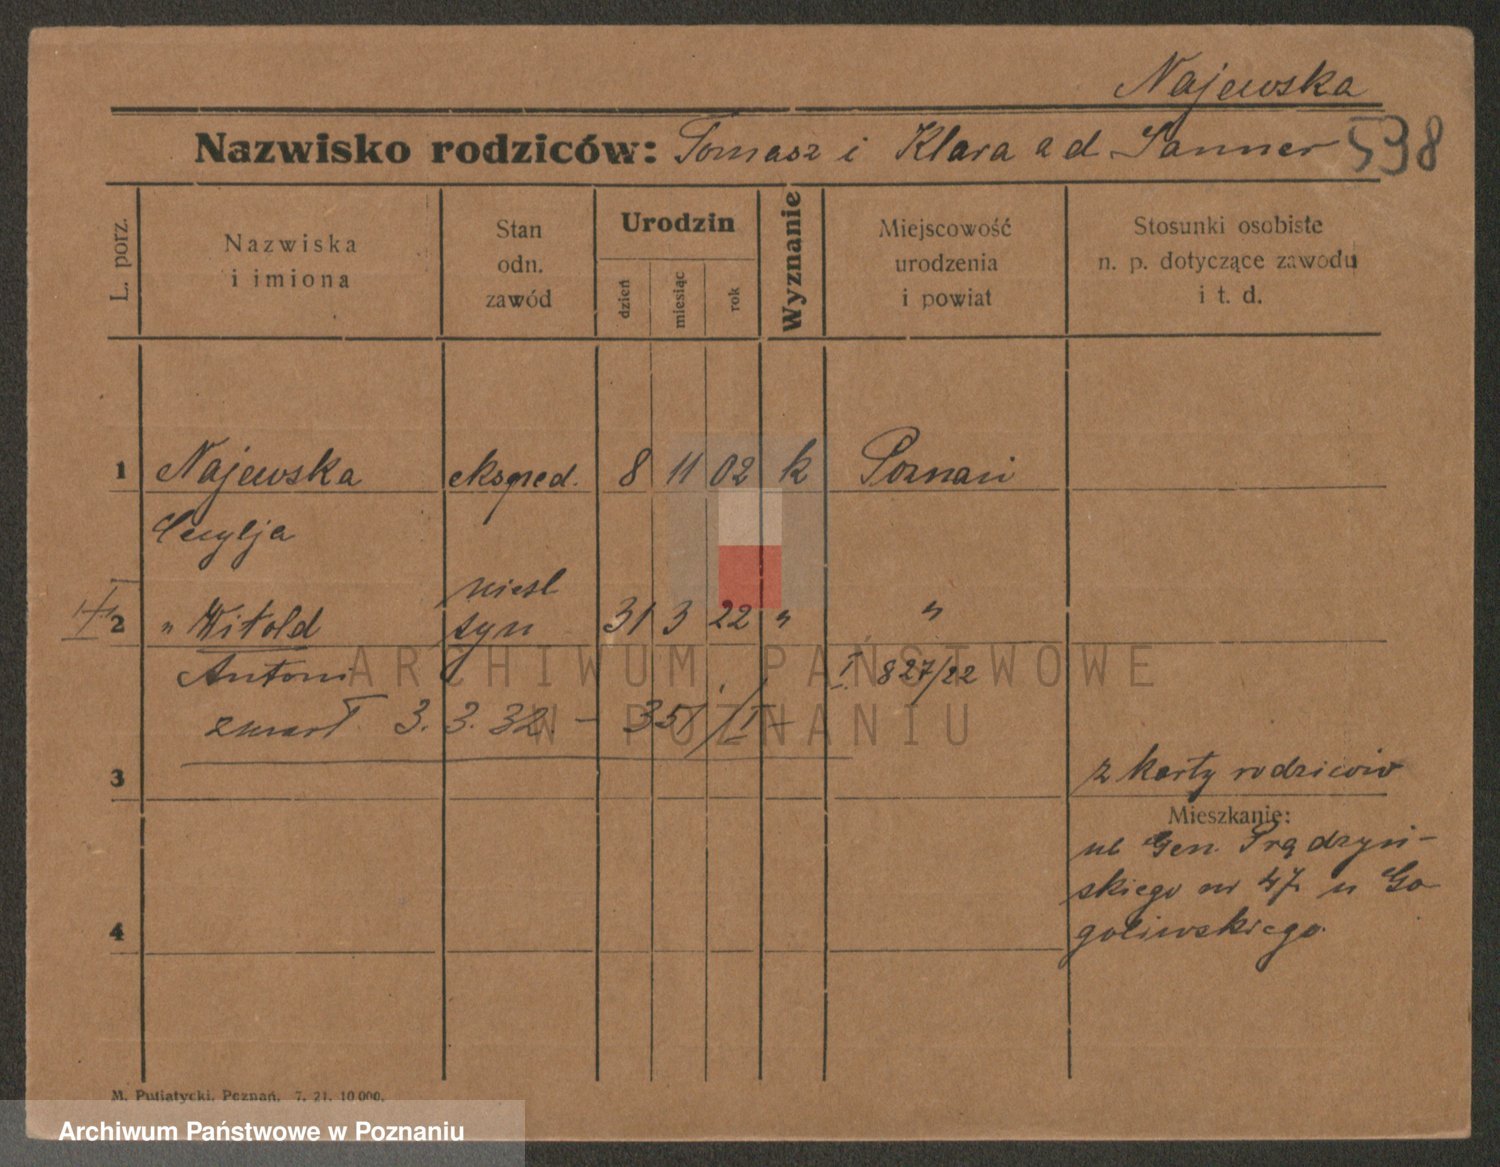 Najewska
Nazwisko rodziców: Tomasz i Klara a d Sanner 598
L. porz.
Nazwiska i imiona
Stan odn. zawód
Urodzin
dzień miesiąc rok
Wyznanie
Miejscowość urodzenia i powiat
Stosunki osobiste n. p. dotyczące zawodu i t. d.
1 Najewska eksped. 8 11 02 k Poznań
Cecylja
niesl
2 " Witold syn 31 3 22 " "
Antoni I 827/22
zmarł 3. 3. 32. – 351/I
3 z karty rodziców
Mieszkanie:
ul Gen. Prądzyń-
skiego nr 47 u Go-
4 goliwskiego.
M. Putiatycki, Poznań. 7. 21. 10 000.
ARCHIWUM PAŃSTWOWE
W POZNANIU
Archiwum Państwowe w Poznaniu